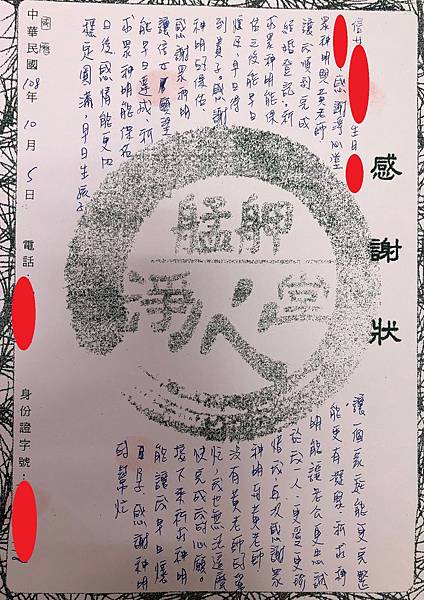 感謝狀
信女
生日
感謝淨心堂
眾神明與黃老師
讓我順利完成
結婚登記，祈
求眾神明能保
佑三後能早日
懷孕，早日得
到貴子。感謝
神明的保佑。
感謝眾神明
讓信女的願望
能早日達成，祈
求眾神明能保佑
日後感情能更加
穩定圓滿，早日生孩子
讓一個家庭能更完整
能更有凝聚。祈求神
明能讓老公更忠誠
於我一人，更愛更珍
惜我，再次感謝眾
神明與黃老師
沒有黃老師的幫
忙，我也無法這麼
快完成我的心願。
接下來祈求神明
能讓我早日懷
孕。感謝神明
的幫忙
艋舺
淨心堂
中華民國 國曆 108年 10月 5日 電話： 身份證字號：